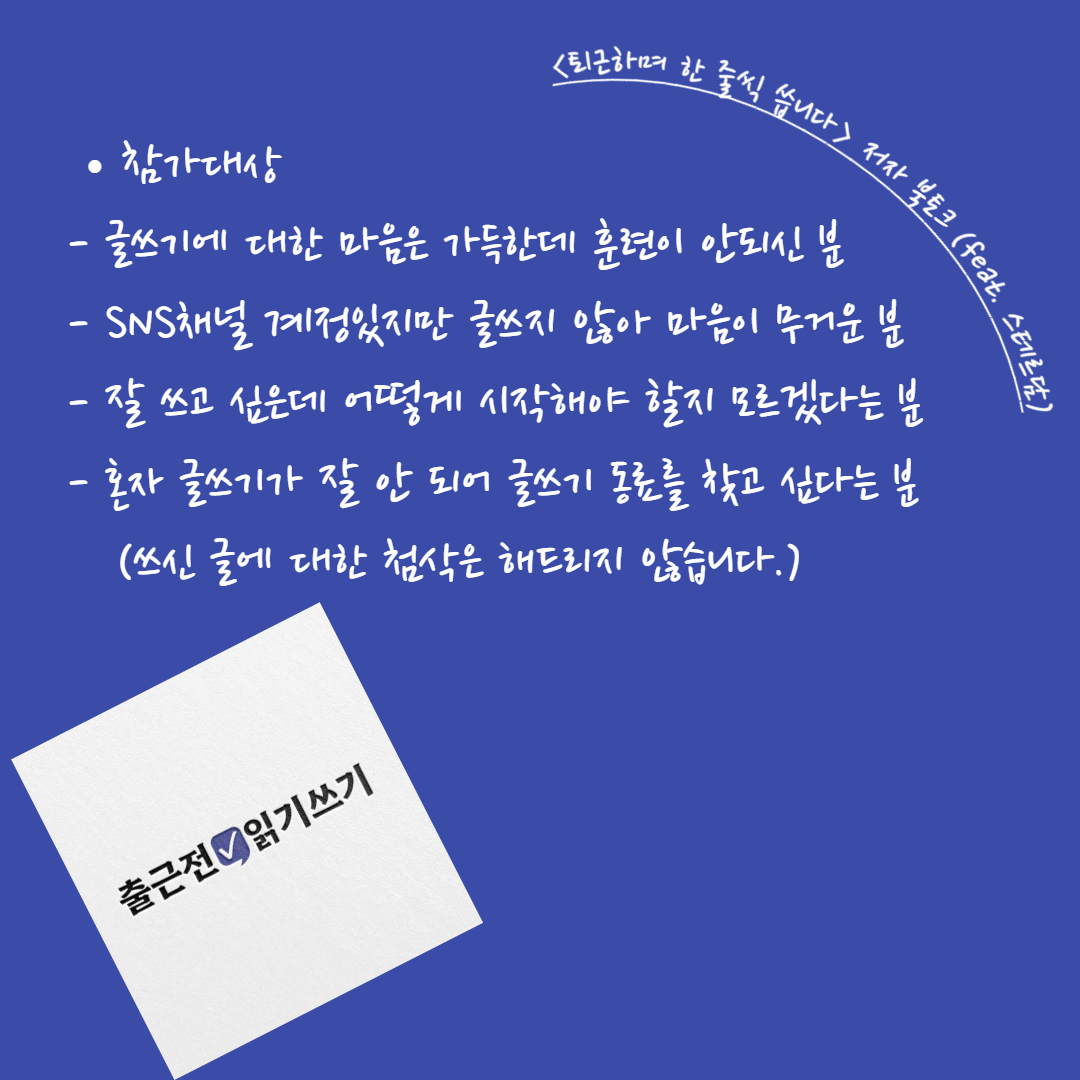 <퇴근하며 한 줄씩 씁니다> 저자 북토크 (feat. 스테르담)
• 참가대상
- 글쓰기에 대한 마음은 가득한데 훈련이 안되신 분
- SNS채널 계정있지만 글쓰지 않아 마음이 무거운 분
- 잘 쓰고 싶은데 어떻게 시작해야 할지 모르겠다는 분
- 혼자 글쓰기가 잘 안 되어 글쓰기 동료를 찾고 싶다는 분
(쓰신 글에 대한 첨삭은 해드리지 않습니다.)
출근전읽기쓰기